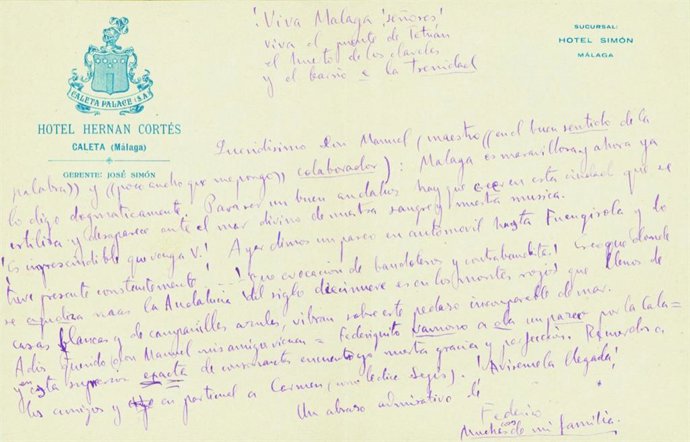 ¡Viva Malaga señores!
viva el puente de Tetuan
el huerto de los claveles
y el barrio e la Trenidad
SUCURSAL:
HOTEL SIMÓN
MÁLAGA
CALETA PALACE (S.A.)
HOTEL HERNAN CORTÉS
CALETA (Málaga)
GERENTE: JOSÉ SIMÓN
Queridisimo Don Manuel (maestro ((en el buen sentido de la
palabra)) y ((poco ancho que me pongo)) colaborador): Malaga es maravillosa y ahora ya
lo digo dogmaticamente. Para ser un buen andaluz hay que creer en esta ciudad que se
estiliza y desaparece ante el mar divino de nuestra sangre y nuestra musica.
¡Es imprescindible que venga V.! Ayer dimos un paseo en automóvil hasta Fuengirola y lo
tuve presente constantemente! ¡Que evocacion de bandoleros y contrabandistas! Creo que donde
se agudiza mas la Andalucia del siglo diecinueve es en los montes rojos que llenos de
casas blancas y de campanillas azules, vibran sobre este pedazo incomparable de mar.
Adios querido Don Manuel mis amigos dicen = Federiquito vamoso a da un paseo por la Cala=
y en esta supresion exacta de consonantes encuentro yo nuestra gracia y perfeccion. Recuerdos a
los amigos y en particular a Carmen ¡Avisenos la llegada!
Un abrazo admirativo de
Federico
Muchos de mi familia.